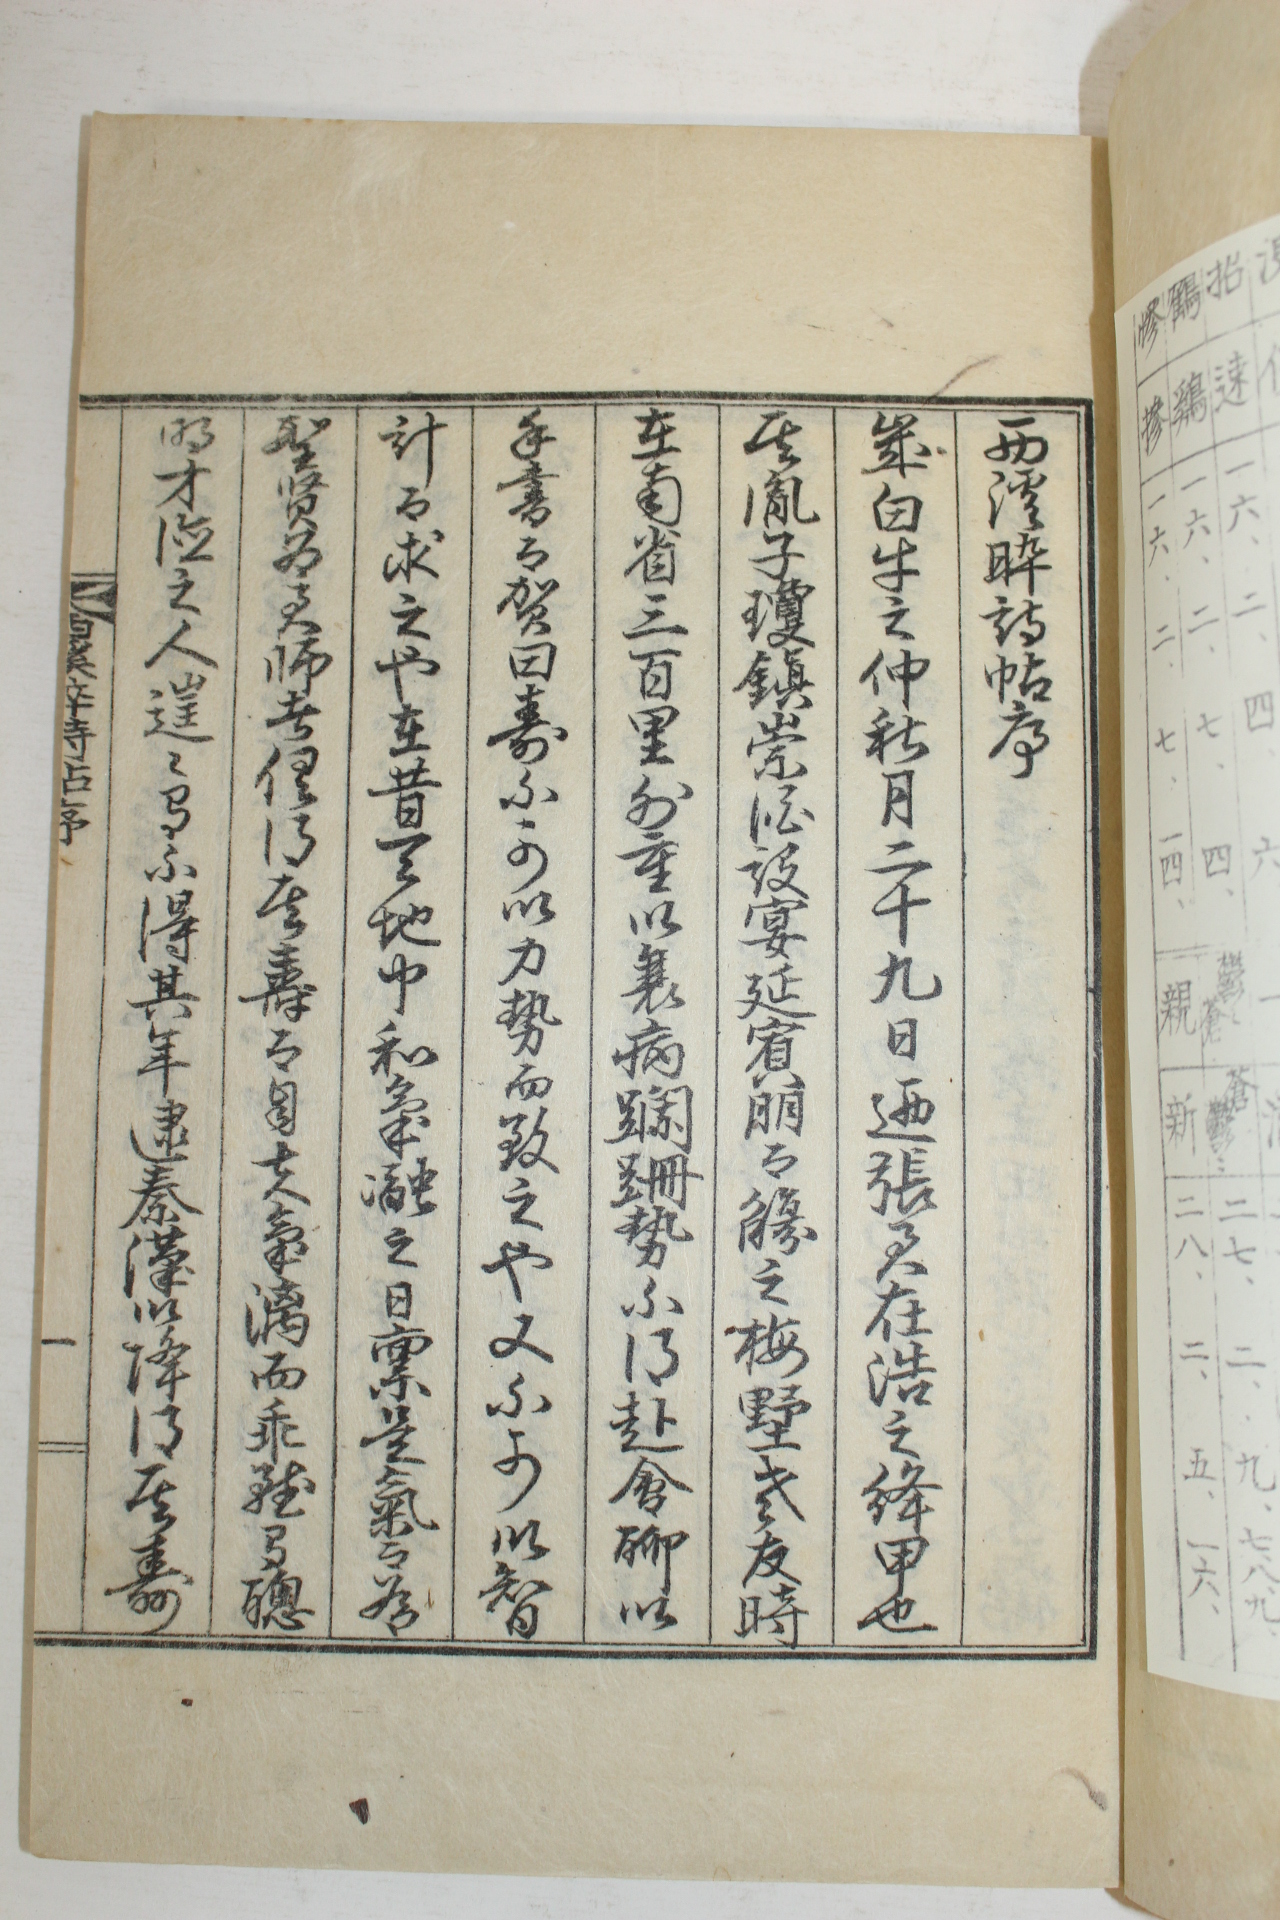 西溪晬詩帖序
歲白牛之仲秋月二十九日迺張友在浩之絳甲也
其胤子瓊鎭崇酒設宴延賓朋而觴之梅墅老友時
在南省三百里外重以衰病蹣跚勢不得赴會聊以
手書而賀曰壽不可以力勢而致之也又不可以智
計而求之也在昔天地中和氣融之日稟是氣而爲
聖賢爲君師者俱得其壽而自大氣漓而乖雖有聰
明才德之人往々有不得其年逮秦漢以降得其壽
西溪晬詩帖序 一
招 速 一六、二、四、六
鶴 鷄 一六、二、七、四、 二七、二、九、七八九、
慘 摻 一六、二、七、一四、 親 新 二八、二、五、一六、